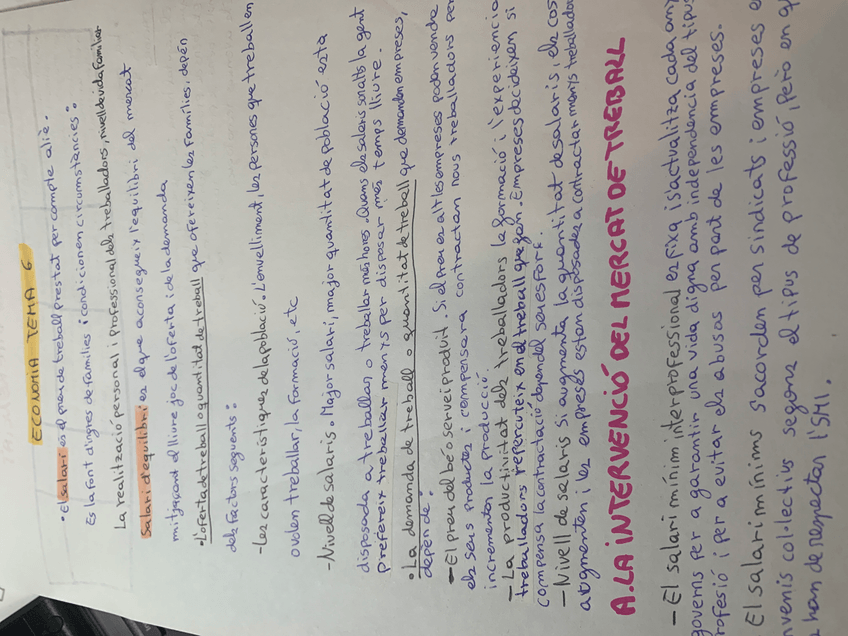 ECONOMIA TEMA 6
• El salari es el preu de treball prestat per compte aliè.
Es la font d'ingres de families i condicionen circumstàncies:
La realització personal i Professional dels treballadors, nivell de vida families
Salari d'equilibri es el que aconsegueix l'equilibri del mercat
mitjaçant el lliure joc de l'oferta i de la demanda
• L'oferta de treball o quantitat de treball que ofereixen les families. depén
dels factors seguents:
- Les característiques de la població. L'envelliment, les persones que treballen
o volen treballar, la formació, etc
- Nivell de salaris. Major salari, major quantitat de població esta
disposada a treballar o treballar més hores. Quans els salaris son alts la gent
prefereix treballar menys per disposar més temps lliure.
• La demanda de treball o quantitat de treball que demanden empreses,
depende:
- El preu del bé o servei produit. Si el preu es alt les empreses poden vendre
els seus productes i compensara contractan nous treballadors per
incrementar la producció.
- La productivitat dels treballadors la formació i l'experiencia
treballadors repercuteix en el treball que fan. Empreses decideixen si
compensa la contractació depen del seu esforç.
- Nivell de salaris si augmenta la quantitat de salaris, els cos
augmenten i les empreses estan disposades a contractar menys treballador
A. LA INTERVENCIÓ DEL MERCAT DE TREBALL
- El salari mínim interprofessional es fixa i s'actualitza cada any
governs per a garantir una vida digna amb independència del tipus
rofesió i per a evitar els abusos per part de les empreses.
El salari mínims s'acorden per sindicats i empreses e
nvenis col·lectius segons el tipus de professió, Però en q
han de respectar l'SMI.